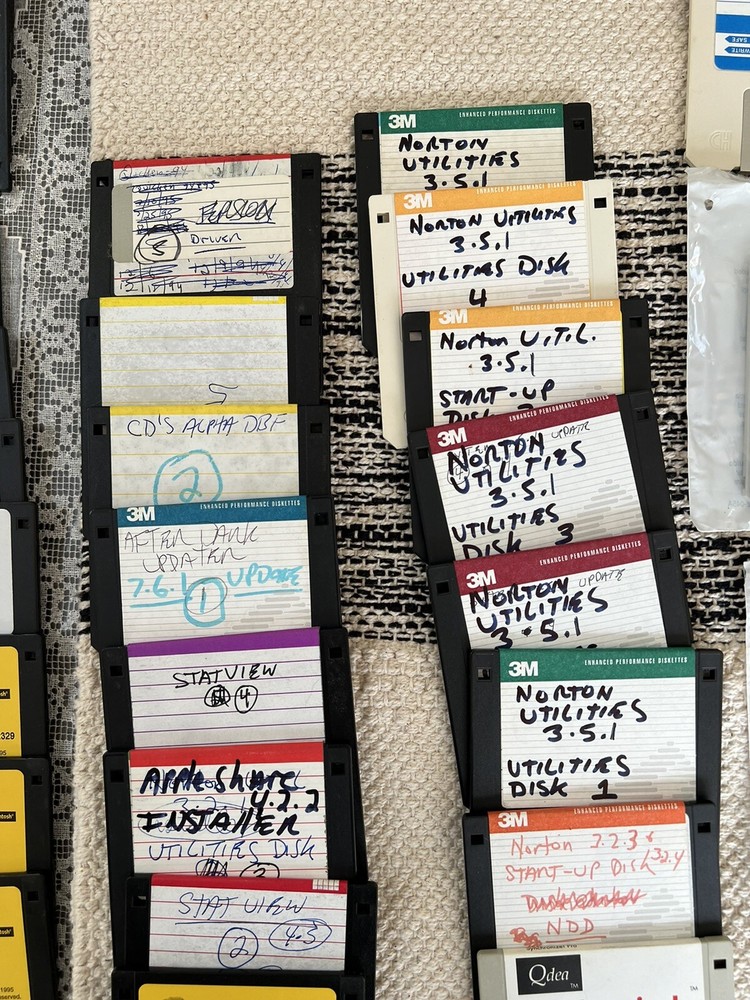 DRIVER
5
12/15/94
5
CD'S ALPHA DBF
2
3M ENHANCED PERFORMANCE DISKETTES
AFTER DARK
UPDATER
7.6.1 UPDATE
1
STATVIEW
4
APPLESHARE
4.2.2
INSTALLER
UTILITIES DISK
2
STAT VIEW
2 4.5
3M ENHANCED PERFORMANCE DISKETTES
NORTON
UTILITIES
3.5.1
3M
NORTON UTILITIES
3.5.1
UTILITIES DISK
4
3M ENHANCED PERFORMANCE DISKETTES
NORTON UTIL.
3.5.1
START-UP
3M ENHANCED PERFORMANCE DISKETTES
NORTON UPDATE
UTILITIES
3.5.1
UTILITIES
DISK 3
3M ENHANCED PERFORMANCE DISKETTES
NORTON UPDATE
UTILITIES
3.5.1
3M ENHANCED PERFORMANCE DISKETTES
NORTON
UTILITIES
3.5.1
UTILITIES
DISK 1
3M ENHANCED PERFORMANCE DISKETTES
START-UP DISK
NDD
Qdea TM
TM
WRITE
SAFE
2329
1995